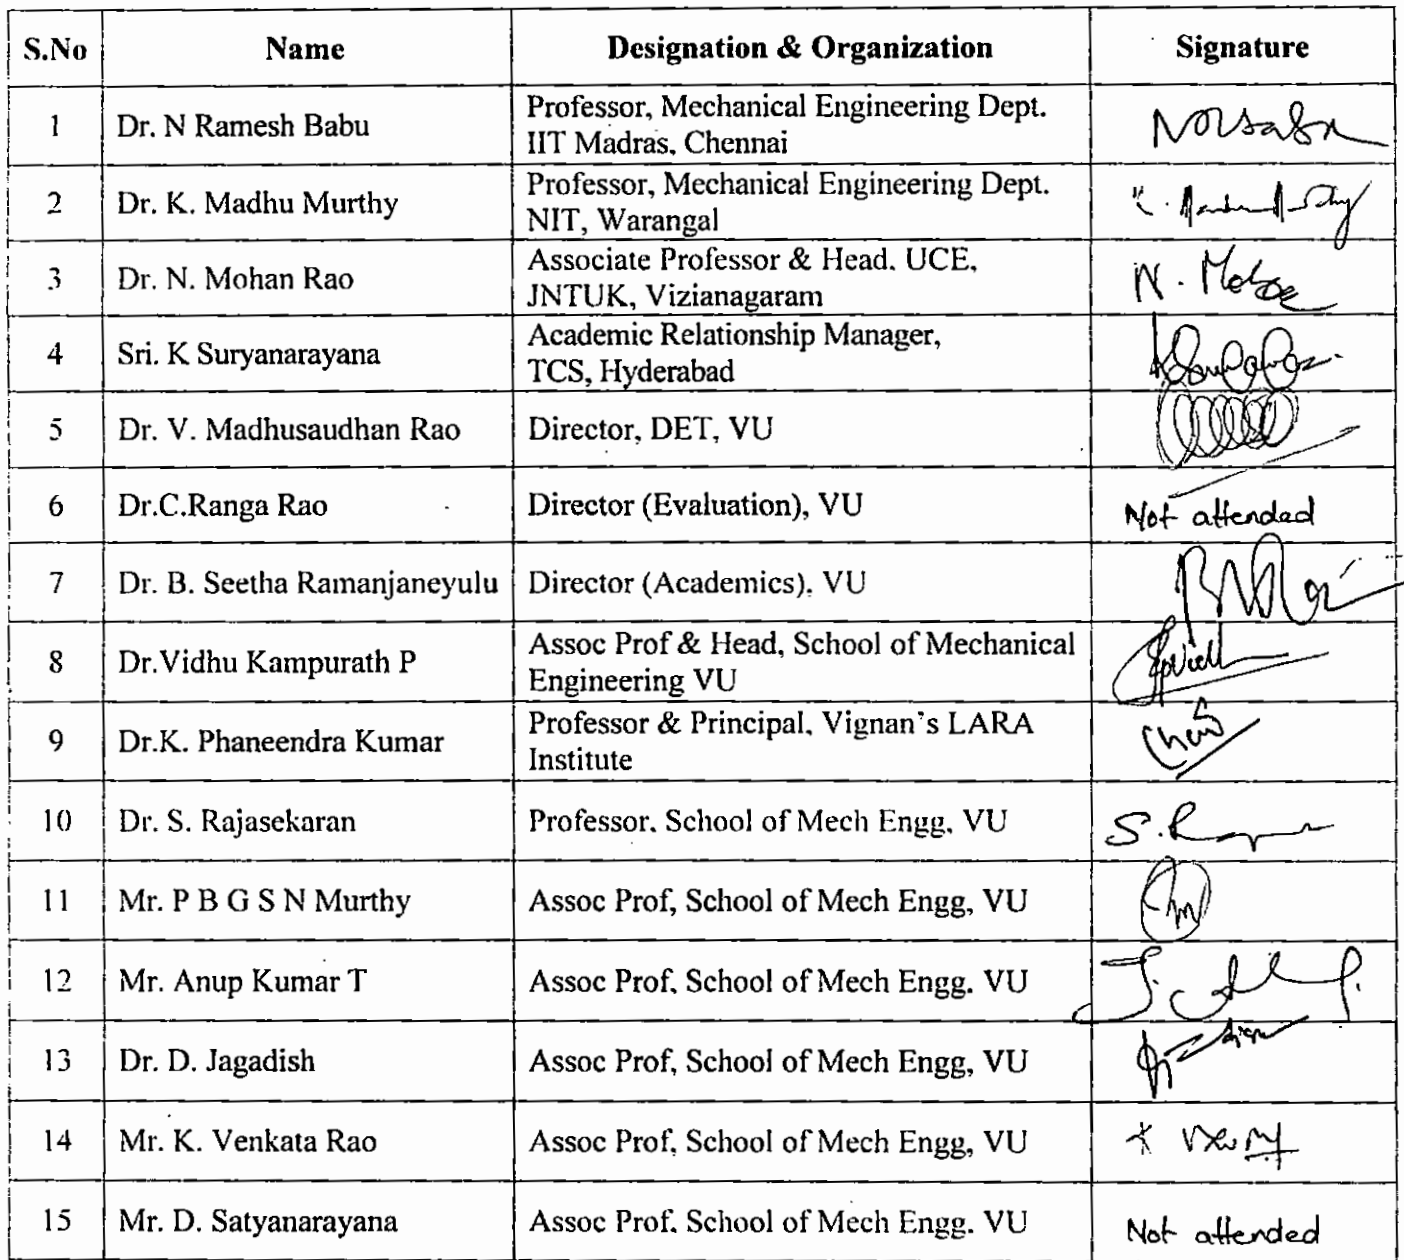 S.No Name Designation & Organization Signature
1 Dr. N Ramesh Babu Professor, Mechanical Engineering Dept.
IIT Madras, Chennai
2 Dr. K. Madhu Murthy Professor, Mechanical Engineering Dept.
NIT, Warangal
3 Dr. N. Mohan Rao Associate Professor & Head. UCE,
JNTUK, Vizianagaram N. Mohan
4 Sri. K Suryanarayana Academic Relationship Manager,
TCS, Hyderabad
5 Dr. V. Madhusaudhan Rao Director, DET, VU
6 Dr.C.Ranga Rao Director (Evaluation), VU Not attended
7 Dr. B. Seetha Ramanjaneyulu Director (Academics), VU
8 Dr.Vidhu Kampurath P Assoc Prof & Head, School of Mechanical
Engineering VU
9 Dr.K. Phaneendra Kumar Professor & Principal, Vignan's LARA
Institute
10 Dr. S. Rajasekaran Professor. School of Mech Engg, VU
11 Mr. P B G S N Murthy Assoc Prof, School of Mech Engg, VU
12 Mr. Anup Kumar T Assoc Prof, School of Mech Engg. VU
13 Dr. D. Jagadish Assoc Prof, School of Mech Engg, VU
14 Mr. K. Venkata Rao Assoc Prof, School of Mech Engg, VU
15 Mr. D. Satyanarayana Assoc Prof. School of Mech Engg. VU Not attended